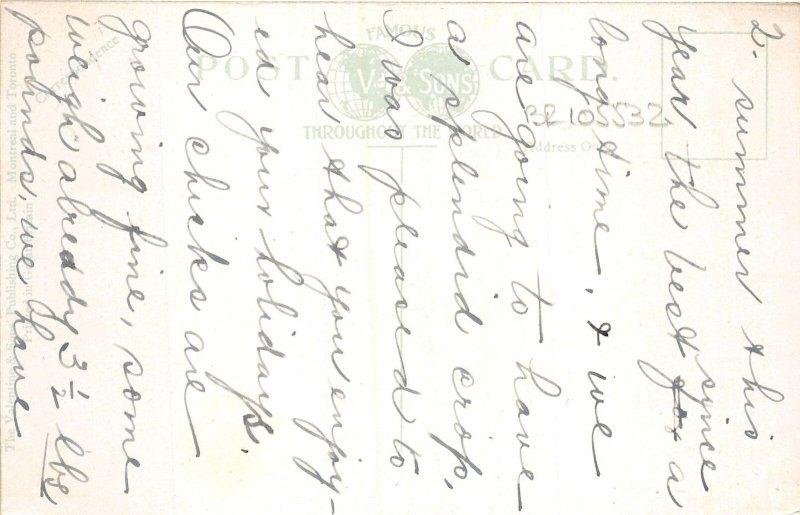 2. summer this
year the best for a
since
long time, & we
are going to have
a splendid crop,
I was pleased to
hear that you enjoy-
ed your holidays.
Our chicks are
growing fine, some
weigh already 3 1/2 lbs
pounds, we have
FAMOUS
POST CARD.
V & SONS
THROUGHOUT THE WORLD
BR105532
Address Only
Correspondence
The Valentine & Sons Publishing Co., Ltd., Montreal and Toronto